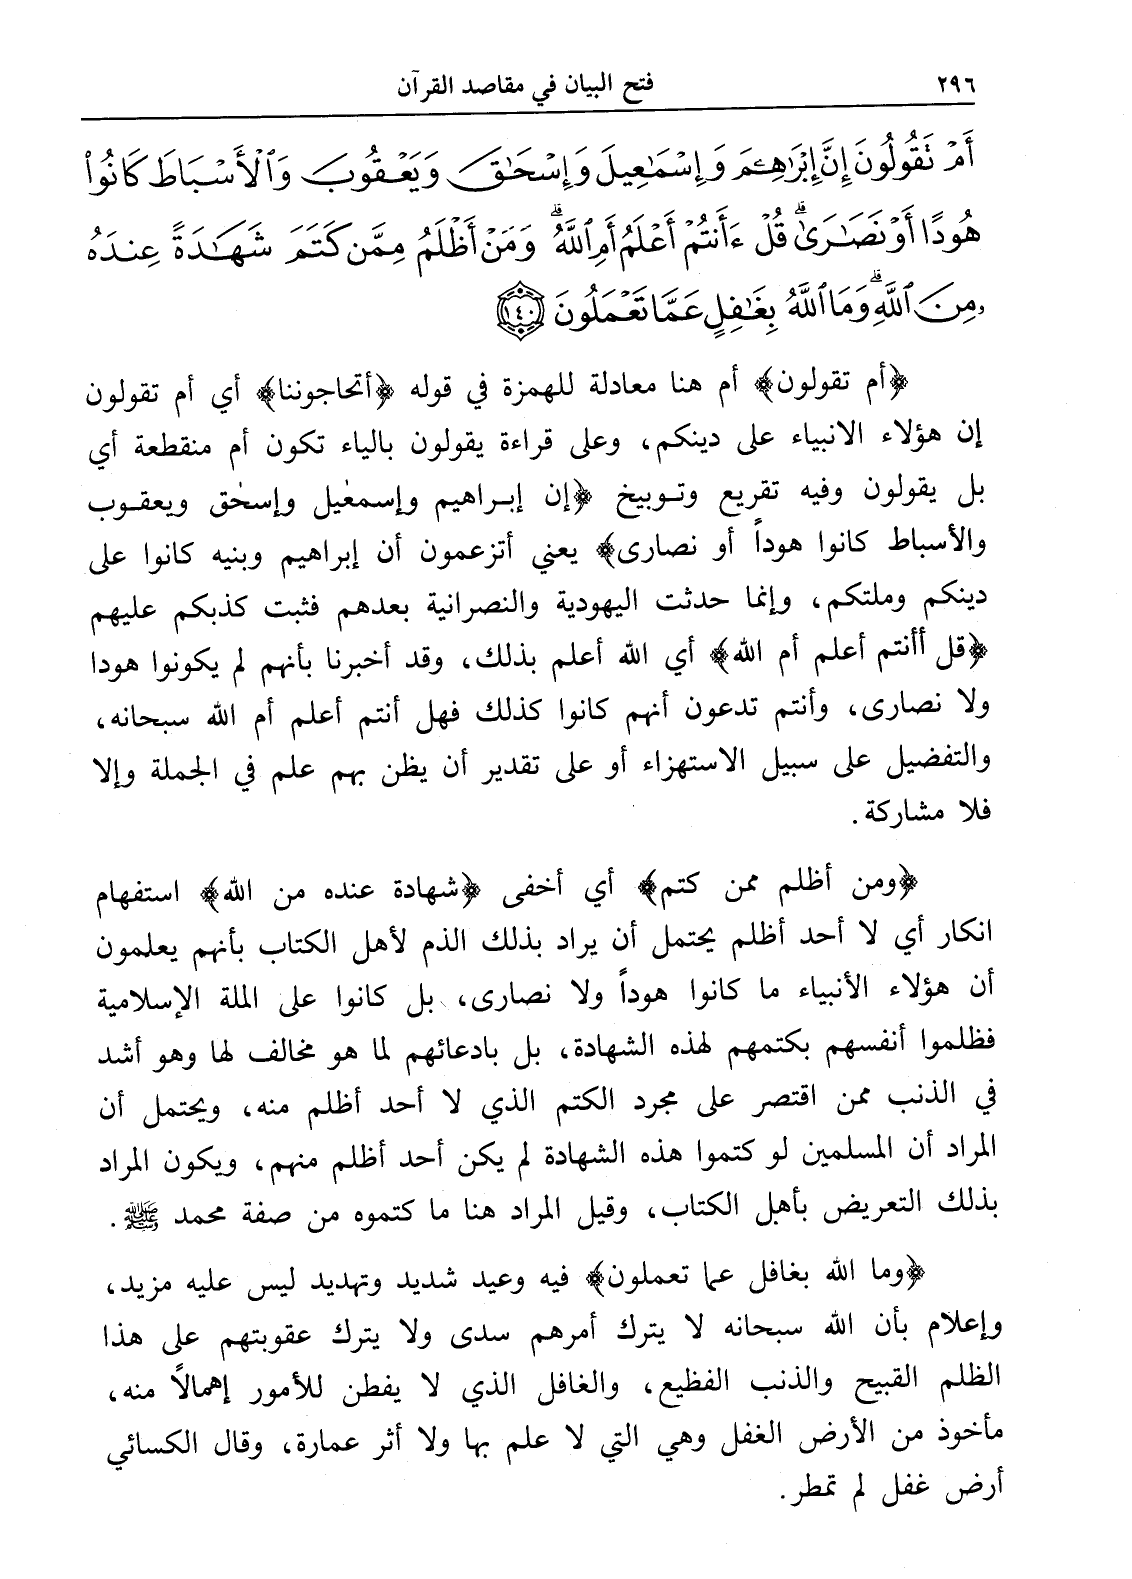 ٢٩٦ فتح البيان في مقاصد القرآن
أَمْ تَقُولُونَ إِنَّ إِبْرَٰهِـۧمَ وَإِسْمَٰعِيلَ وَإِسْحَٰقَ وَيَعْقُوبَ وَٱلْأَسْبَاطَ كَانُوا۟
هُودًا أَوْ نَصَٰرَىٰۗ قُلْ ءَأَنتُمْ أَعْلَمُ أَمِ ٱللَّهُۗ وَمَنْ أَظْلَمُ مِمَّن كَتَمَ شَهَٰدَةً عِندَهُۥ
مِنَ ٱللَّهِۗ وَمَا ٱللَّهُ بِغَٰفِلٍ عَمَّا تَعْمَلُونَ ١٤٠
﴿أم تقولون﴾ أم هنا معادلة للهمزة في قوله ﴿أتحاجوننا﴾ أي أم تقولون
إن هؤلاء الانبياء على دينكم، وعلى قراءة يقولون بالياء تكون أم منقطعة أي
بل يقولون وفيه تقريع وتوبيخ ﴿إن إبراهيم وإسمٰعيل وإسحٰق ويعقوب
والأسباط كانوا هوداً أو نصارى﴾ يعني أتزعمون أن إبراهيم وبنيه كانوا على
دينكم وملتكم، وإنما حدثت اليهودية والنصرانية بعدهم فثبت كذبكم عليهم
﴿قل أأنتم أعلم أم الله﴾ أي الله أعلم بذلك، وقد أخبرنا بأنهم لم يكونوا هودا
ولا نصارى، وأنتم تدعون أنهم كانوا كذلك فهل أنتم أعلم أم الله سبحانه،
والتفضيل على سبيل الاستهزاء أو على تقدير أن يظن بهم علم في الجملة وإلا
فلا مشاركة.
﴿ومن أظلم ممن كتم﴾ أي أخفى ﴿شهادة عنده من الله﴾ استفهام
انكار أي لا أحد أظلم يحتمل أن يراد بذلك الذم لأهل الكتاب بأنهم يعلمون
أن هؤلاء الأنبياء ما كانوا هوداً ولا نصارى، بل كانوا على الملة الإسلامية
فظلموا أنفسهم بكتمهم لهذه الشهادة، بل بادعائهم لما هو مخالف لها وهو أشد
في الذنب ممن اقتصر على مجرد الكتم الذي لا أحد أظلم منه، ويحتمل أن
المراد أن المسلمين لو كتموا هذه الشهادة لم يكن أحد أظلم منهم، ويكون المراد
بذلك التعريض بأهل الكتاب، وقيل المراد هنا ما كتموه من صفة محمد ﷺ.
﴿وما الله بغافل عما تعملون﴾ فيه وعيد شديد وتهديد ليس عليه مزيد،
وإعلام بأن الله سبحانه لا يترك أمرهم سدى ولا يترك عقوبتهم على هذا
الظلم القبيح والذنب الفظيع، والغافل الذي لا يفطن للأمور إهمالاً منه،
مأخوذ من الأرض الغفل وهي التي لا علم بها ولا أثر عمارة، وقال الكسائي
أرض غفل لم تمطر.